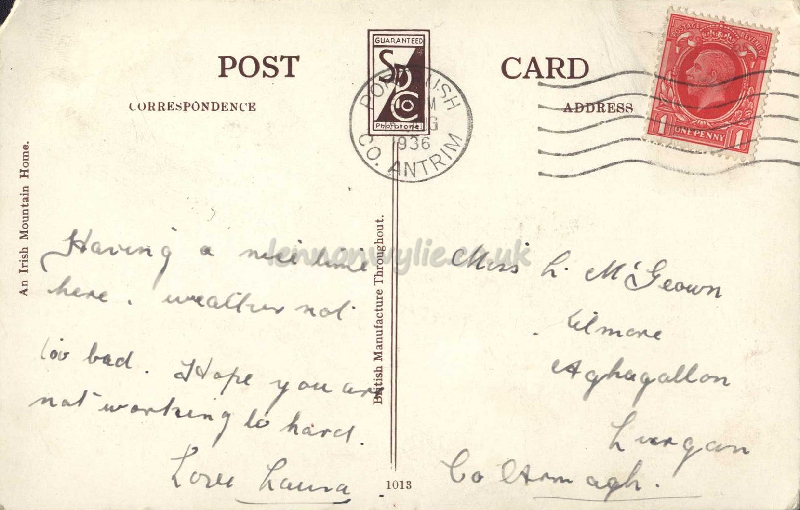 POST CARD
CORRESPONDENCE
ADDRESS
GUARANTEED
SD Co
Phototone
PORTRUSH
AUG
1936
CO. ANTRIM
1 ONE PENNY 1
An Irish Mountain Home.
British Manufacture Throughout.
lennonwylie.co.uk
Having a nice time
here. weather not
too bad. Hope you are
not working to hard.
Love Laura
Miss L. McGeown
Kilmore
Aghagallon
Lurgan
Co Armagh.
1013